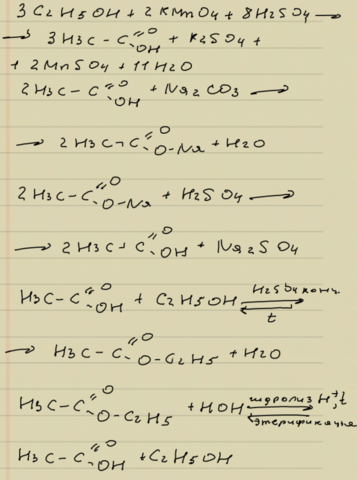 3 C2H5OH + 2 KMnO4 + 8 H2SO4 →
→ 3 H3C – C =O OH + K2SO4 +
+ 2 MnSO4 + 11 H2O
2 H3C – C =O OH + Na2CO3 →
→ 2 H3C – C =O O–Na + H2O
2 H3C – C =O O–Na + H2SO4 →
→ 2 H3C – C =O OH + Na2SO4
H3C – C =O OH + C2H5OH ⇄ H2SO4 конц. t
→ H3C – C =O O–C2H5 + H2O
H3C – C =O O–C2H5 + HOH ⇄ гидролиз H+, t этерификация
H3C – C =O OH + C2H5OH